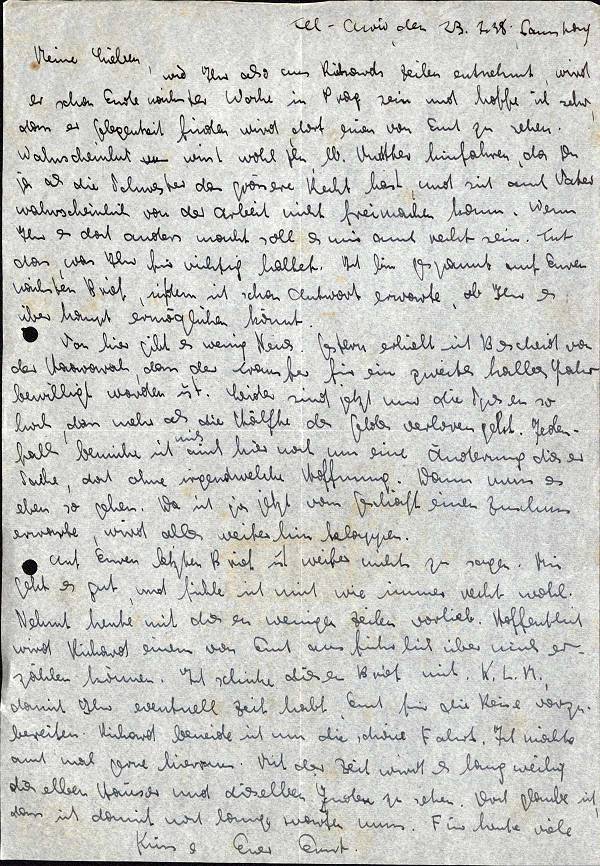 Tel-Aviv, den 23. 7. 38. Samstag
Meine Lieben,
wie Ihr also aus Richards Zeilen entnehmt, wird
er schon Ende nächster Woche in Prag sein und hoffe ich sehr,
dass er Gelegenheit finden wird, dort einen von Euch zu sehen.
Wahrscheinlich wirst wohl Du, lb. Mutter hinfahren, da Du
ja als die Schwester das grössere Recht hast und sich auch Vater
wahrscheinlich von der Arbeit nicht freimachen kann. Wenn
Ihr es dort anders macht soll es mir auch recht sein. Tut
das, was Ihr für richtig haltet. Ich bin gespannt auf Euren
nächsten Brief, indem ich schon Antwort erwarte, ob Ihr es
überhaupt ermöglichen könnt.
Von hier gibt es wenig Neues. Gestern erhielt ich Bescheid von
der Haavarah, dass der Transfer für ein zweites halbes Jahr
bewilligt worden ist. Leider sind jetzt nur die Spesen so
hoch, dass mehr als die Hälfte des Geldes verloren geht. Jeden-
falls bemühe ich mich auch hier noch um eine Änderung dieser
Sache, doch ohne irgendwelche Hoffnung. Dann muss es
eben so gehen. Da ich ja jetzt vom Geschäft einen Zuschuss
erwarte, wird alles weiterhin klappen.
Auf Euren letzten Brief ist weiter nichts zu sagen. Mir
geht es gut, und fühle ich mich wie immer recht wohl.
Nehmt heute mit diesen wenigen Zeilen vorlieb. Hoffentlich
wird Richard einem von Euch ausführlich über mich er-
zählen können. Ich schicke diesen Brief mit K.L.M.,
damit Ihr eventuell Zeit habt, Euch für die Reise vorzu-
bereiten. Richard beneide ich um die schöne Fahrt. Ich möchte
auch mal gerne hier raus. Mit der Zeit wird es langweilig
dieselben Häuser und dieselben zu sehen. Doch glaube ich,
dass ich damit noch lange warten muss. Für heute viele
Küsse Euer Ernst.